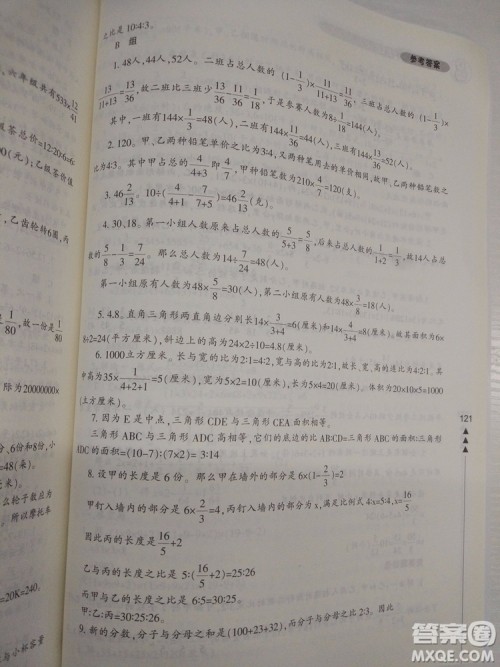 参考答案
之比是 10:4:3。
B 组
1. 48人,44人,52人。二班占总人数的(1-1/3)×
11/(11+13)=11/36,故二班比三班少13/36-11/36=1/18,于是参赛人数8÷1/18=144(人)。
其中,一班有144×1/3=48(人),二班有144×11/36=44(人),三班有144×13/36=52(人)。
2. 120。甲、乙两种铅笔单价之比为3:4,又两种笔用去的单价相同,故
比为4:3。其中甲占总的4/(4+3)即4/7,甲种铅笔数为210×4/7=120(支)。
3. 46 2/3。10÷(4/4-
4. 30,18。第一小组人数原来占总人数的5/(5+3)=5/8,后来占总人数的1/(1+2)=1/3,故14人占总人
数的5/8-1/3=7/24。那么总人数14÷7/24=48(人)。
第一小组原有人数48×5/8=30(人),第二小组原有人数48×3/8=18(人)
5. 4.8。直角三角形两直角边分别长14×3/(4+3)=6(厘米)和14×4/(4+3)=8(厘米)。故其面积为6×
8÷2=24(平方厘米),斜边上的高为24×2÷10=4.8(厘米)。
6. 1000立方厘米。长与宽的比为2:1=4:2,宽与高的比为2:1,故长、宽、高的连比为4:2:1。其
中高为35×1/(4+2+1)=5(厘米),宽为5×2=10(厘米),长为5×4=20(厘米)。体积为20×10×5=1000
(立方厘米)。
7. 因为E是中点,三角形CDE与三角形CEA面积相等。
三角形ABC与三角形ADC高相等,它们的底边的比AB:CD=三角形ABC的面积:三角形
ADC的面积=(10-7):(7×2)= 3:14
8. 设甲的长度是6份。那么甲在墙外的部分是6×(1-2/3)=2
甲钉入墙内的部分是6×2/3=4,丙钉入墙内的部分为x,满足比例式4:5=4:x,x=16/5
因此丙的长度是16/5+2
乙与丙的长度之比是5:(16/5+2)=25:26
而甲与乙的长度之比是6:5=30:25。
甲:乙:丙=30:25:26。
9. 新的分数,分子与分母之和是(100+23+32),而分子与分母之比2:3。因此
121
六年级共有533×12/41
级茶总价=12:20:6×6
00(元);乙级茶价值
,乙齿轮转6圈,丙
1/80,故一份是1/80
际为20000000×
6份和8份,小
=48(米)。
么轮子数应为
。所以摩托车
=20K=240。
与小杯容量
答案圈
MXQE.COM